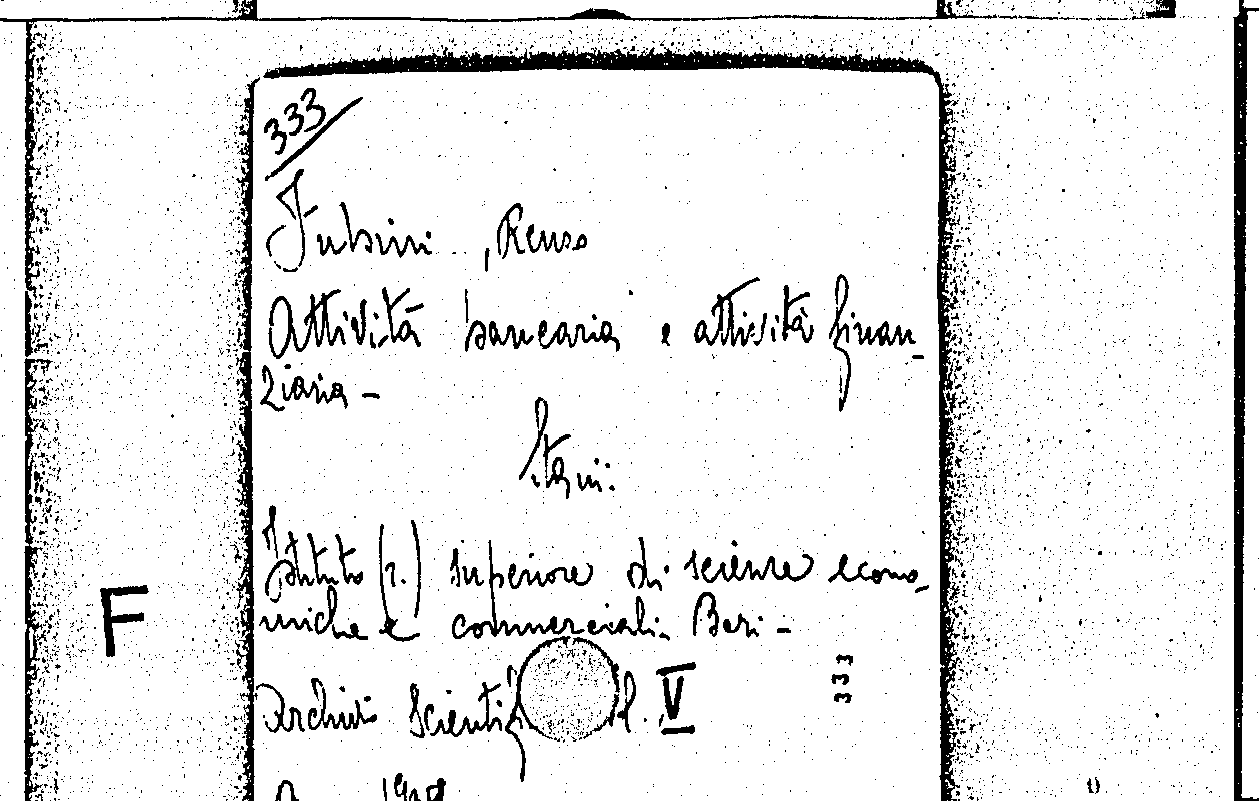 333
Fubini, Renso
Attività bancaria e attività finan-
ziaria -
Istituto (r.) superiore di scienze econo-
miche e commerciali. Bari -
Archivio Scientif
V
333
F